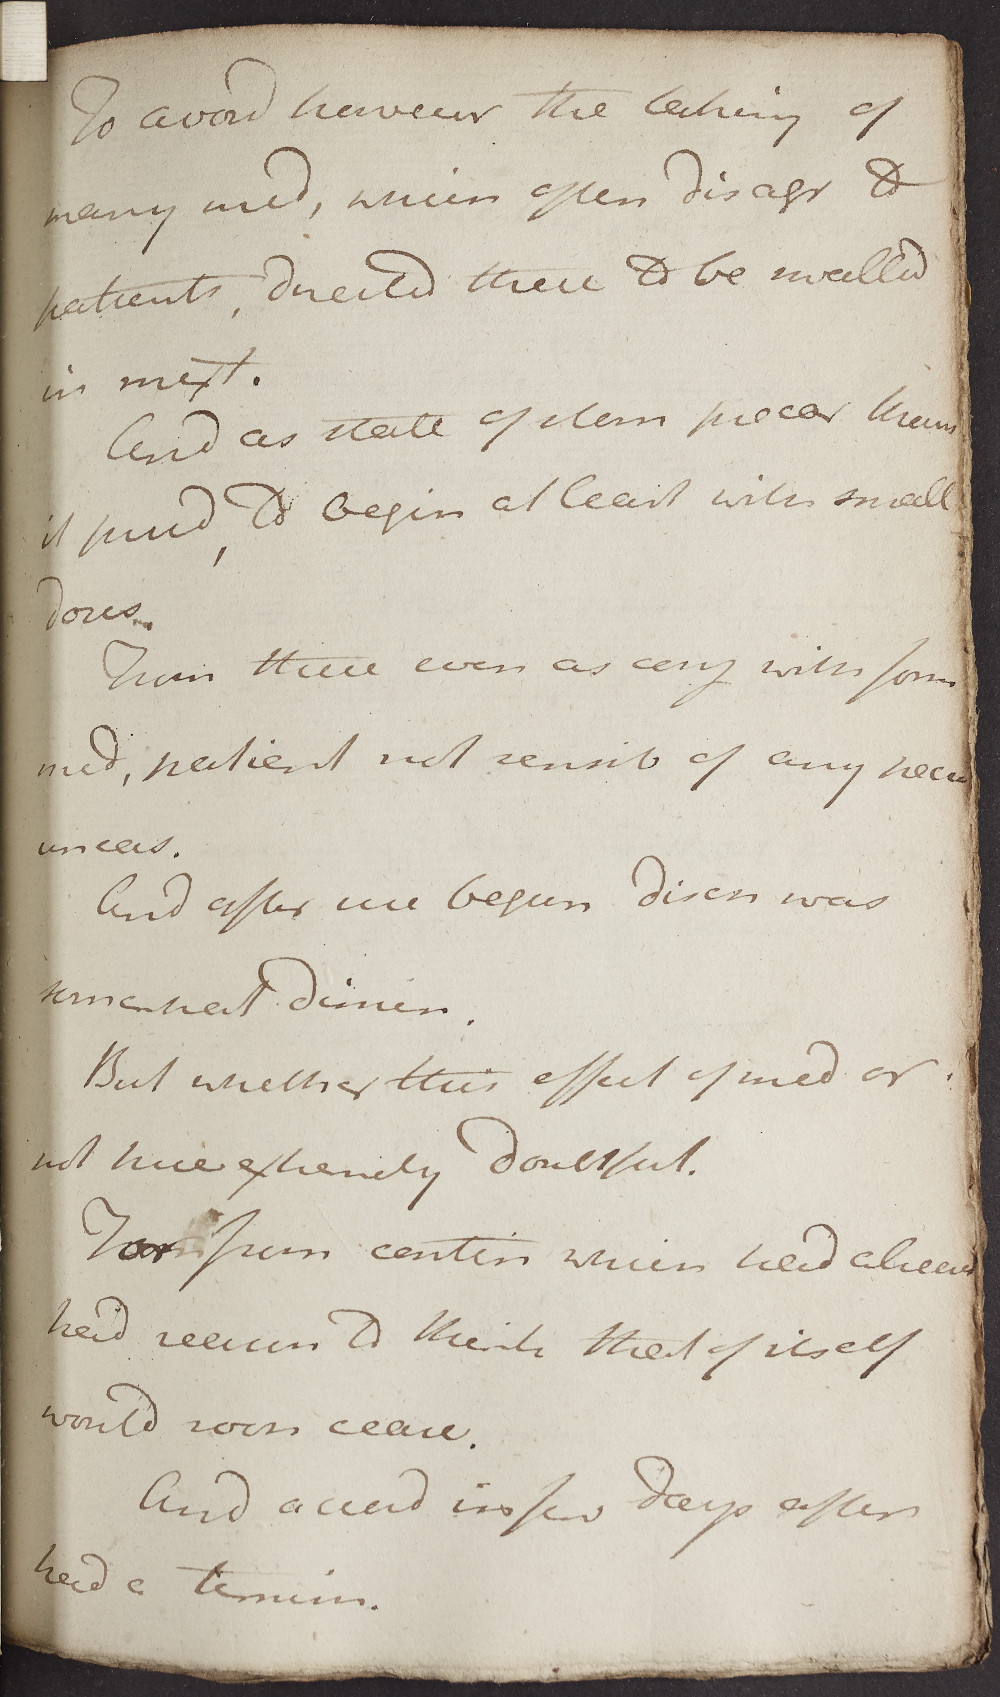 To avoid however the taking of
many med, which often disagr to
patients, directed these to be swalld
in mixt.
And as state of stom precar thou
it prud, to begin at least with small
doses.
From these even as easy with form
med, patient not sensib of any pecu
uneas.
And after use begun disch was
somewhat dimin.
But whether this effect of med or
not here extremely doubtful.
For from contin which had alread
had reason to think that of itself
would soon cease.
And accord in few days after
had a termin.